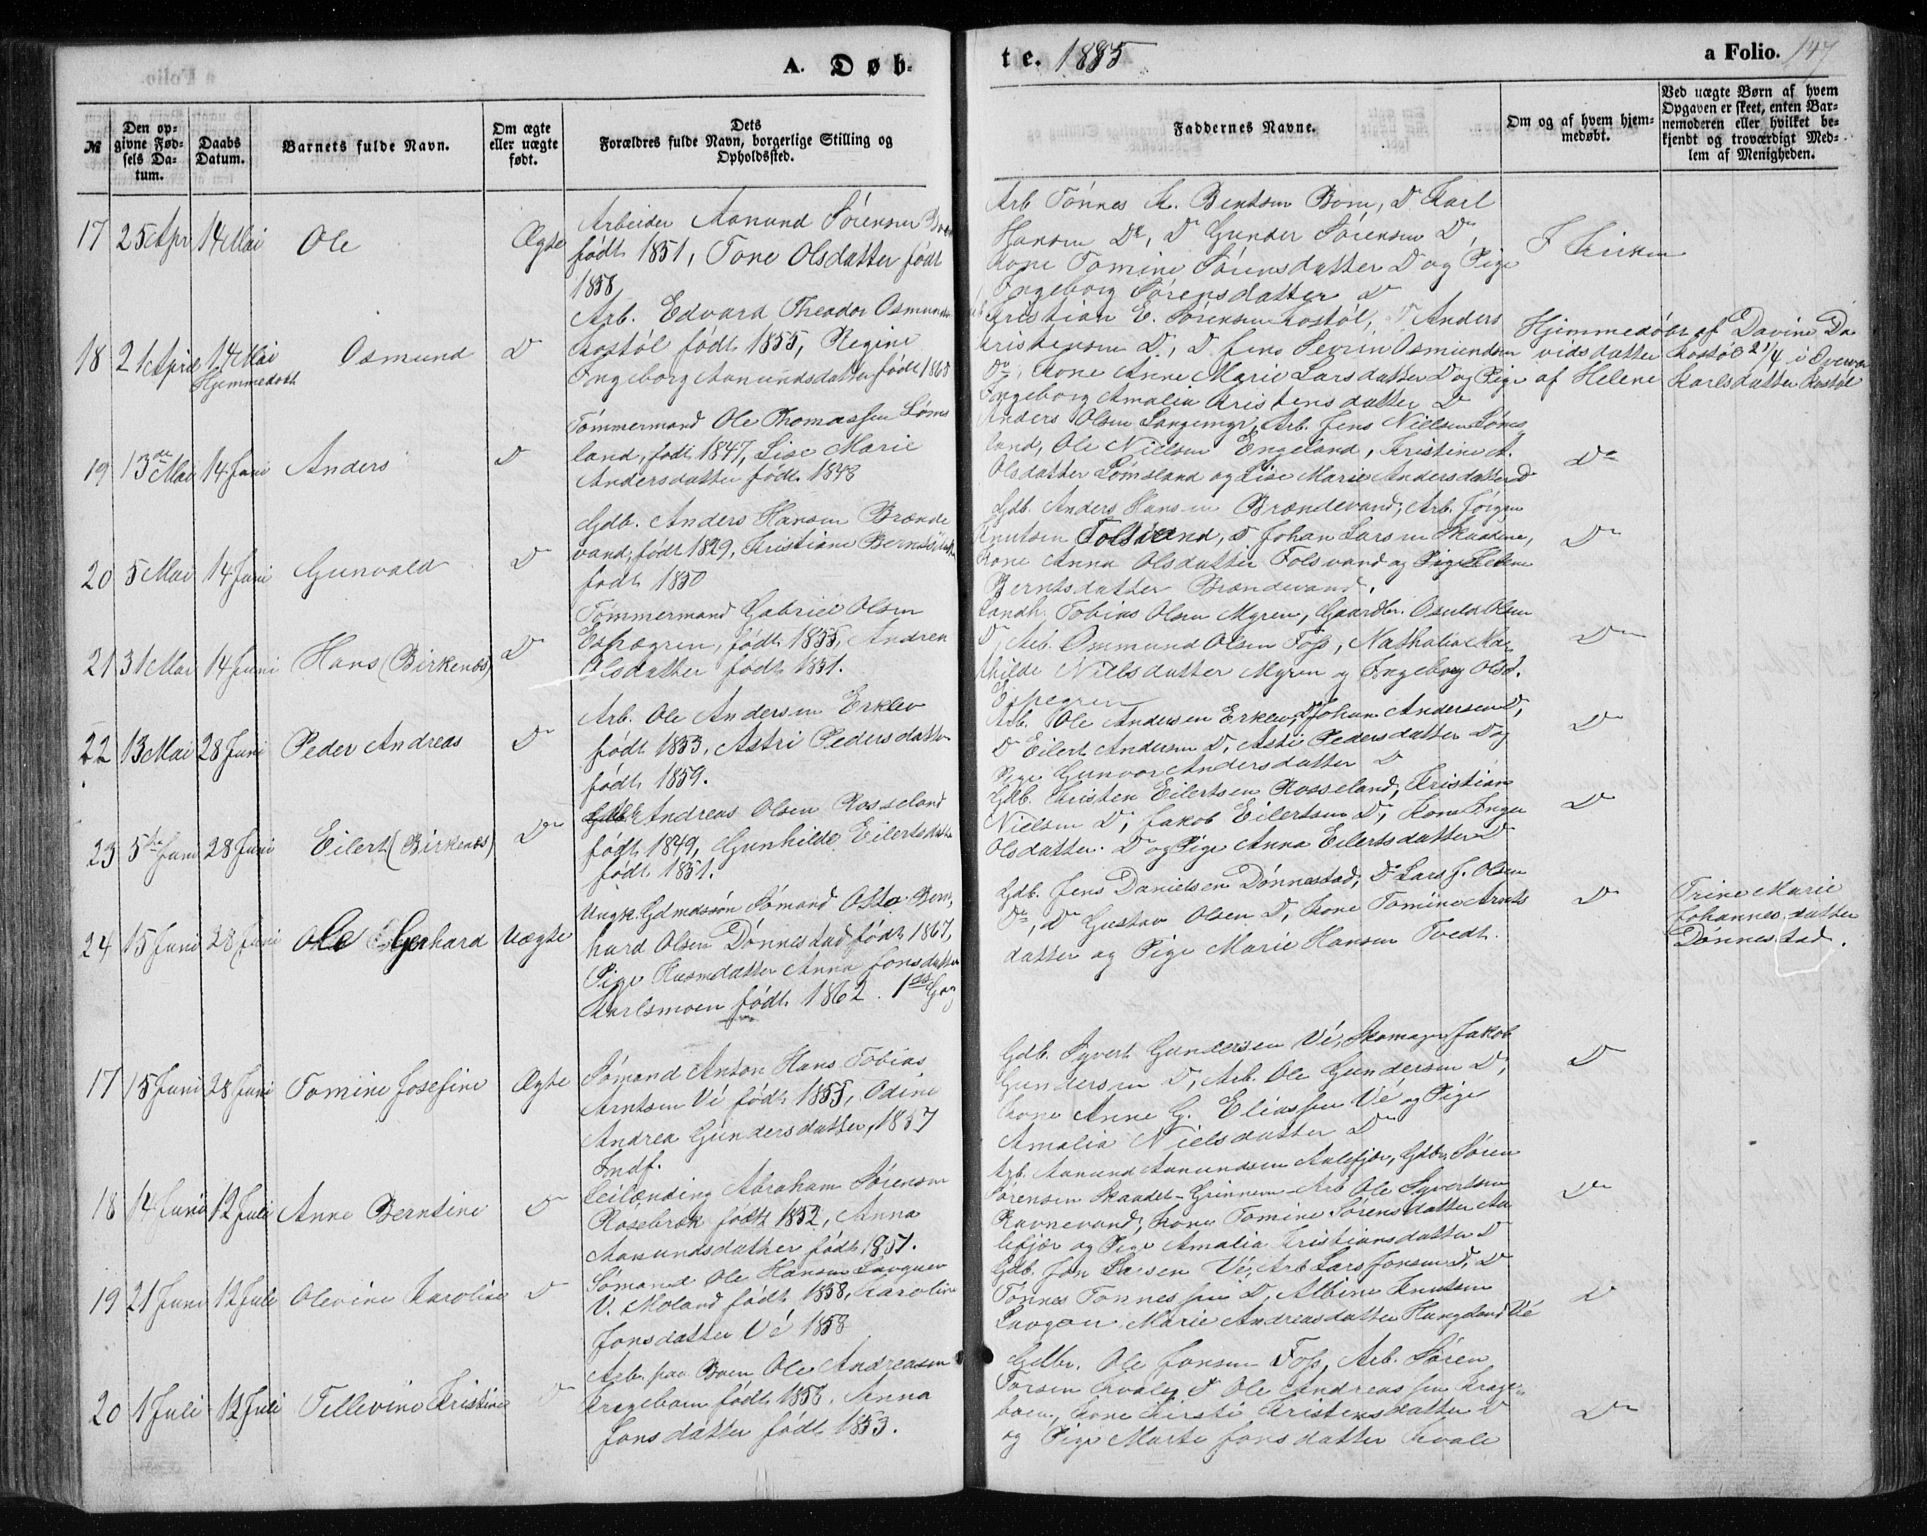 A. Døb-
te. 1885
a Folio. 147
№
Den opgivne Fødsels Datum.
Daabs Datum.
Barnets fulde Navn.
Om ægte eller uægte født.
Dets Forældres fulde Navn, borgerlige Stilling og Opholdssted.
Faddernes Navne.
Om og af hvem hjemmedøbt.
Ved uægte Børn af hvem Opgaven er skeet, enten Barnemoderen eller hvilket bekjendt og troværdigt Medlem af Menigheden.
17 25 Apr 14 Mai Ole Ægte
Arbeider Aanund Sørensen
født 1851, Tone Olsdatter født
1858
Arb Tønnes K. Bentsen Boen, Do Karl
Hansen Do, Do Gunder Sørensen Do,
Kone Tomine Sørensdatter Do og Pige
Ingeborg Sørensdatter Do
I Kirken
18 21 April 14 Mai Hjemmedøbt Osmund Do
Arb. Edvard Theodor Osmundsen
Kostøl født 1855, Regine
Ingeborg Aanundsdatter født 1860
Kristian E. Sørensen Kostøl, Anders
Kristensen Do, Do Jens Severin Osmundsen
Do, Kone Anne Marie Larsdatter Do og Pige
Ingeborg Amalia Kristensdatter Do
Hjemmedøbt af Davine Da
vidsdatter Kostøl 21/4 i Overvær
af Helene Karlsdatter Kostøl
19 13de Mai 14 Juni Anders Do
Tømmermand Ole Thomassen Løms
land, født 1847, Lise Marie
Andersdatter født 1848
Anders Olsen Langemyr, Arb. Jens Nielsen Løms
land, Ole Nielsen Engeland, Kristine A.
Olsdatter Lømsland og Lise Marie Andersdatter Do
Do
20 5 Mai 14 Juni Gunvald Do
Gdb. Anders Hansen Brænde
vand, født 1829, Kristiane Berntsdatter
født 1850
Gdb. Anders Hansen Brændevand, Arb. Jørgen
Knutsen Folsvand, Do Johan Larsen Skaadene,
Kone Anna Olsdatter Folsvand og Pige Helene
Berntsdatter Brændevand.
Do
21 31 Mai 14 Juni Hans (Birkenæs) Do
Tømmermand Gabriel Olsen
Espegren, født 1855, Andrea
Olsdatter født 1851.
Landh. Tobias Olsen Myren, Gaardbr. Osuld Olsen
Do, Arb. Ommund Olsen Foss, Nathalia Ma-
thilde Nielsdatter Myren og Ingeborg Olsd.
Espegren
Do
22 13 Mai 28 Juni Peder Andreas Do
Arb. Ole Andersen Erklev
født 1853, Astri Pedersdatter
født 1859.
Arb. Ole Andersen Erklev, Do Johan Andersen Do,
Do Eilert Andersen Do, Asti Pedersdatter Do og
Pige Gunvor Andersdatter Do
Do
23 5te Juni 28 Juni Eilert (Birkenæs) Do
Andreas Olsen Rosseland
født 1849, Gunhilde Eilertsdatter
født 1851.
Gdb. Kristen Eilertsen Rosseland, Kristian
Nielsen Do, Jakob Eilertsen Do, Kone Inger
Olsdatter Do og Pige Anna Eilertsdatter Do
Do
24 15 Juni 28 Juni Ole Gerhard Uægte
Ungk. Gdmdssøn Sømand Otto Bern-
hard Olsen Dønnestad født 1867,
Pige Husmdatter Anna Jonsdatter
Karlsmoen født 1862. 1ste Gang
Gdb. Jens Danielsen Dønnestad, Do Lars J. Olsen
Do, Do Gustav Olsen Do, Kone Tomine Arnts
datter og Pige Marie Hansen Tvedt.
Do
Trine Marie
Johannesdatter
Dønnestad.
17 15 Juni 28 Juni Tomine Josefine Ægte
Sømand Anton Hans Tobias
Arntsen Vé født 1855, Odine
Andrea Gundersdatter, 1857
Indf.
Gdb. Syvert Gundersen Vé, Skomager Jakob
Gundersen Do, Arb. Ole Gundersen Do,
Kone Anne G. Eliassen Vé og Pige
Amalia Nielsdatter Do
Do
18 14 Juni 12 Juli Anne Berntine Do
Leilænding Abraham Sørensen
Rosebræk født 1852, Anna
Aanundsdatter født 1851.
Arb. Aanund Aanundsen Aalefjær, Gdbr. Søren
Sørensen Skandet-Grinnem-Arb Ole Syvertsen
Ravnevand, Kone Tomine Sørensdatter Aa
lefjær og Pige Amalia Kristiansdatter Do
Do
19 21 Juni 12 Juli Olevine Karoline Do
Sømand Ole Hansen Lauguen
V. Moland født 1858, Karoline
Jonsdatter Vé, 1858
Gdb. Jon Larsen Vé, Arb Lars Jonsen Do, Do
Tønnes Tønnessen Do, Albine Knutsen
Marie Andreasdatter Haugland Vé
Do
20 1 Juli 12 Juli Tellevine Kristine Do
Arb. paa Boen Ole Andreassen
Krageboen født 1858, Anna
Jonsdatter født 1853.
Gdbr. Ole Jonsen Foss, Arb. Søren
Torsen Kvale, Do Ole Andreassen Krage-
boen, Kone Kirsti Kristensdatter Do
og Pige Marte Jonsdatter Kvale
Do